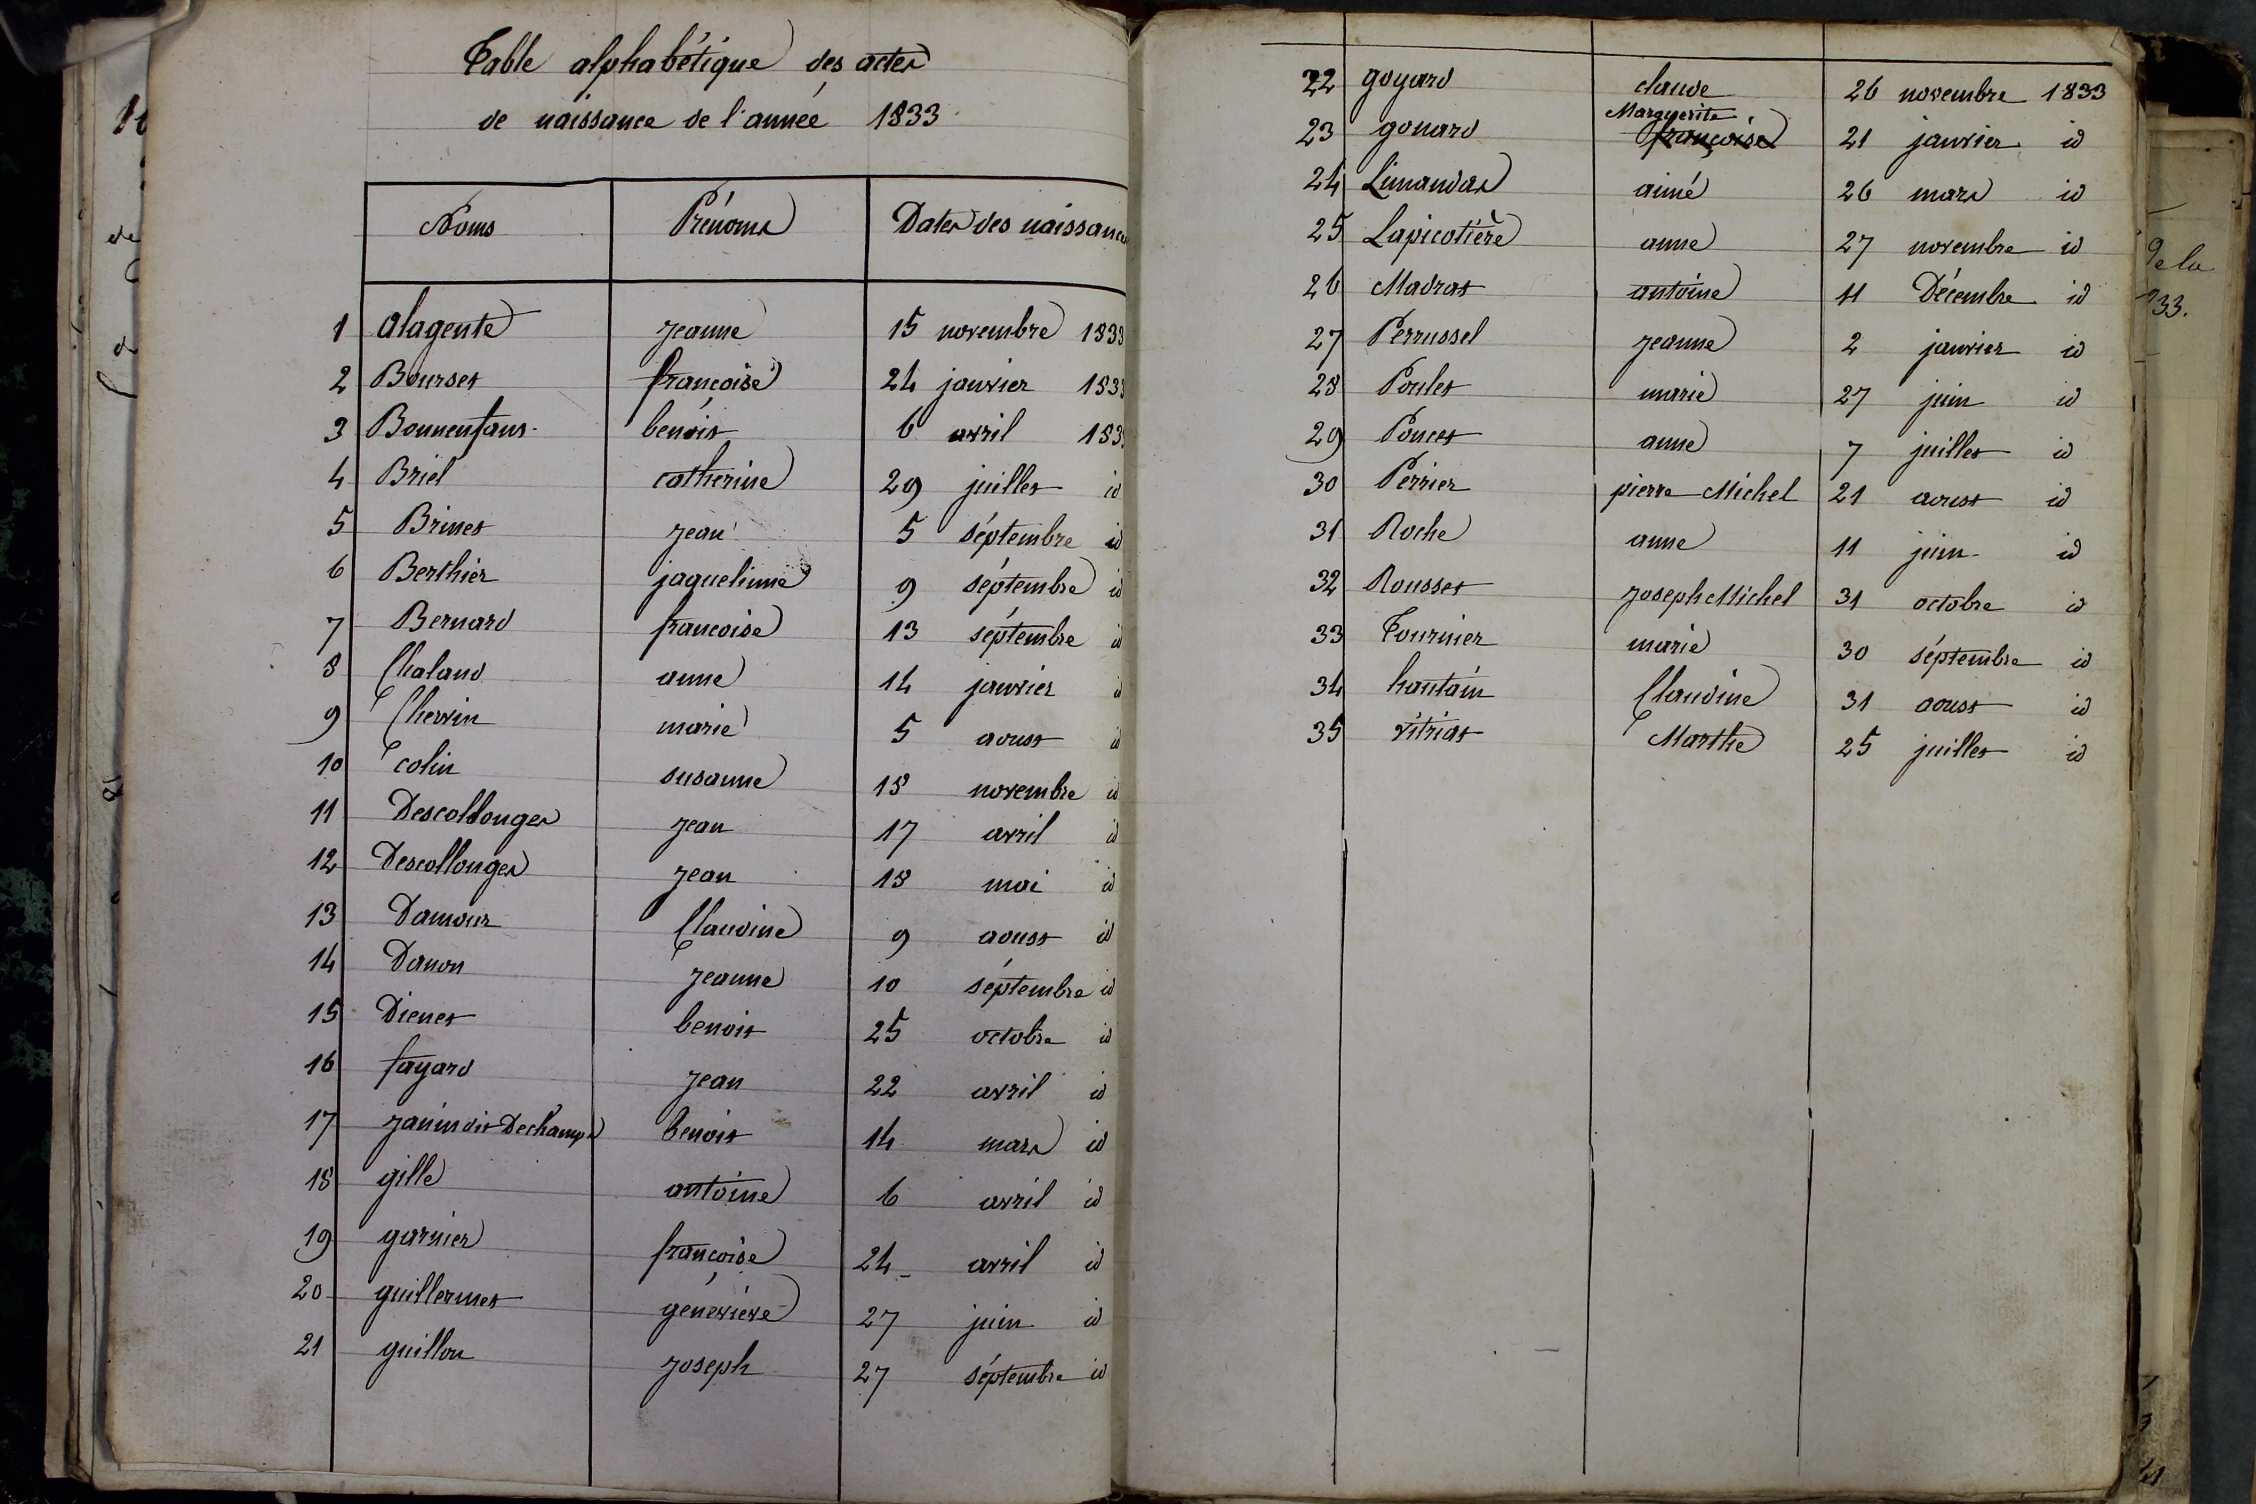 Table alphabétique des actes
de naissance de l'année 1833
Noms Prénoms Dates des naissances
1 alagente jeanne 15 novembre 1833
2 Bourset françoise 24 janvier 1833
3 Bonnenfant benoit 6 avril 183
4 Briel catherine 29 juillet id
5 Brinet jean 5 séptembre id
6 Berthier jaquelinne 9 séptembre id
7 Bernard francoise 13 séptembre id
8 Chaland anne 14 janvier id
9 Chervin marie 5 aoust id
10 colin susanne 18 novembre id
11 Descollonges jean 17 avril id
12 Descollonges jean 18 mai id
13 Damour Claudine 9 aoust id
14 Danon jeanne 10 séptembre id
15 Dienet benoit 25 octobre id
16 fayard jean 22 avril id
17 janin dit Dechamps benoit 14 mars id
18 gille antoine 6 avril id
19 garnier françoise 24 avril id
20 guillermet géneviève 27 juin id
21 guillon joseph 27 séptembre id
22 goyard claude 26 novembre 1833
Marguerite
23 gonard françoise 21 janvier id
24 Limandas aimé 26 mars id
25 Lapicotière anne 27 novembre id
26 Madras antoine 11 Décembre id
27 Perrussel jeanne 2 janvier id
28 Poulet marie 27 juin id
29 Poncet anne 7 juillet id
30 Perrier pierre Michel 21 aoust id
31 Roche anne 11 juin id
32 Rousset joseph Michel 31 octobre id
33 Tournier marie 30 séptembre id
34 hautain Claudine 31 aoust id
35 vitriat Marthe 25 juillet id
de la
33.